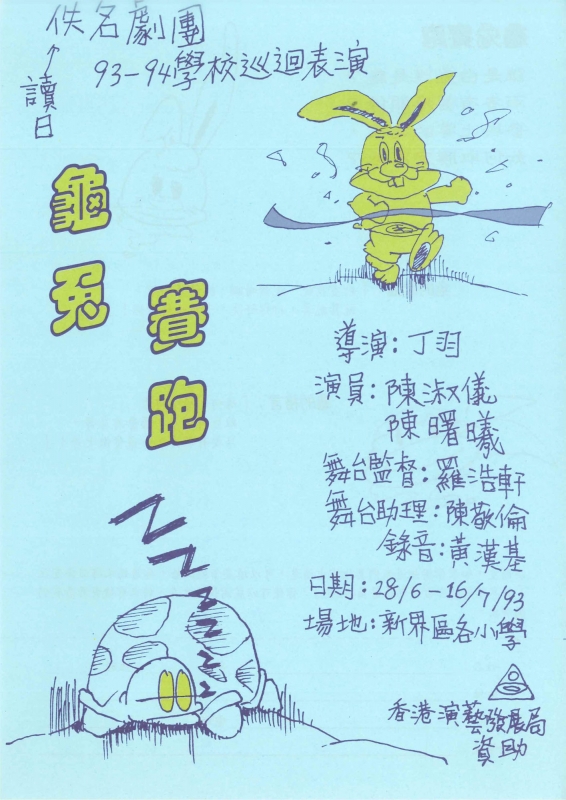 佚名劇團
讀日
93-94學校巡迴表演
龜兔
賽跑
導演：丁羽
演員：陳淑儀
陳曙曦
舞台監督：羅浩軒
舞台助理：陳敬倫
錄音：黃漢基
日期：28/6-16/7/93
場地：新界區各小學
香港演藝發展局
資助